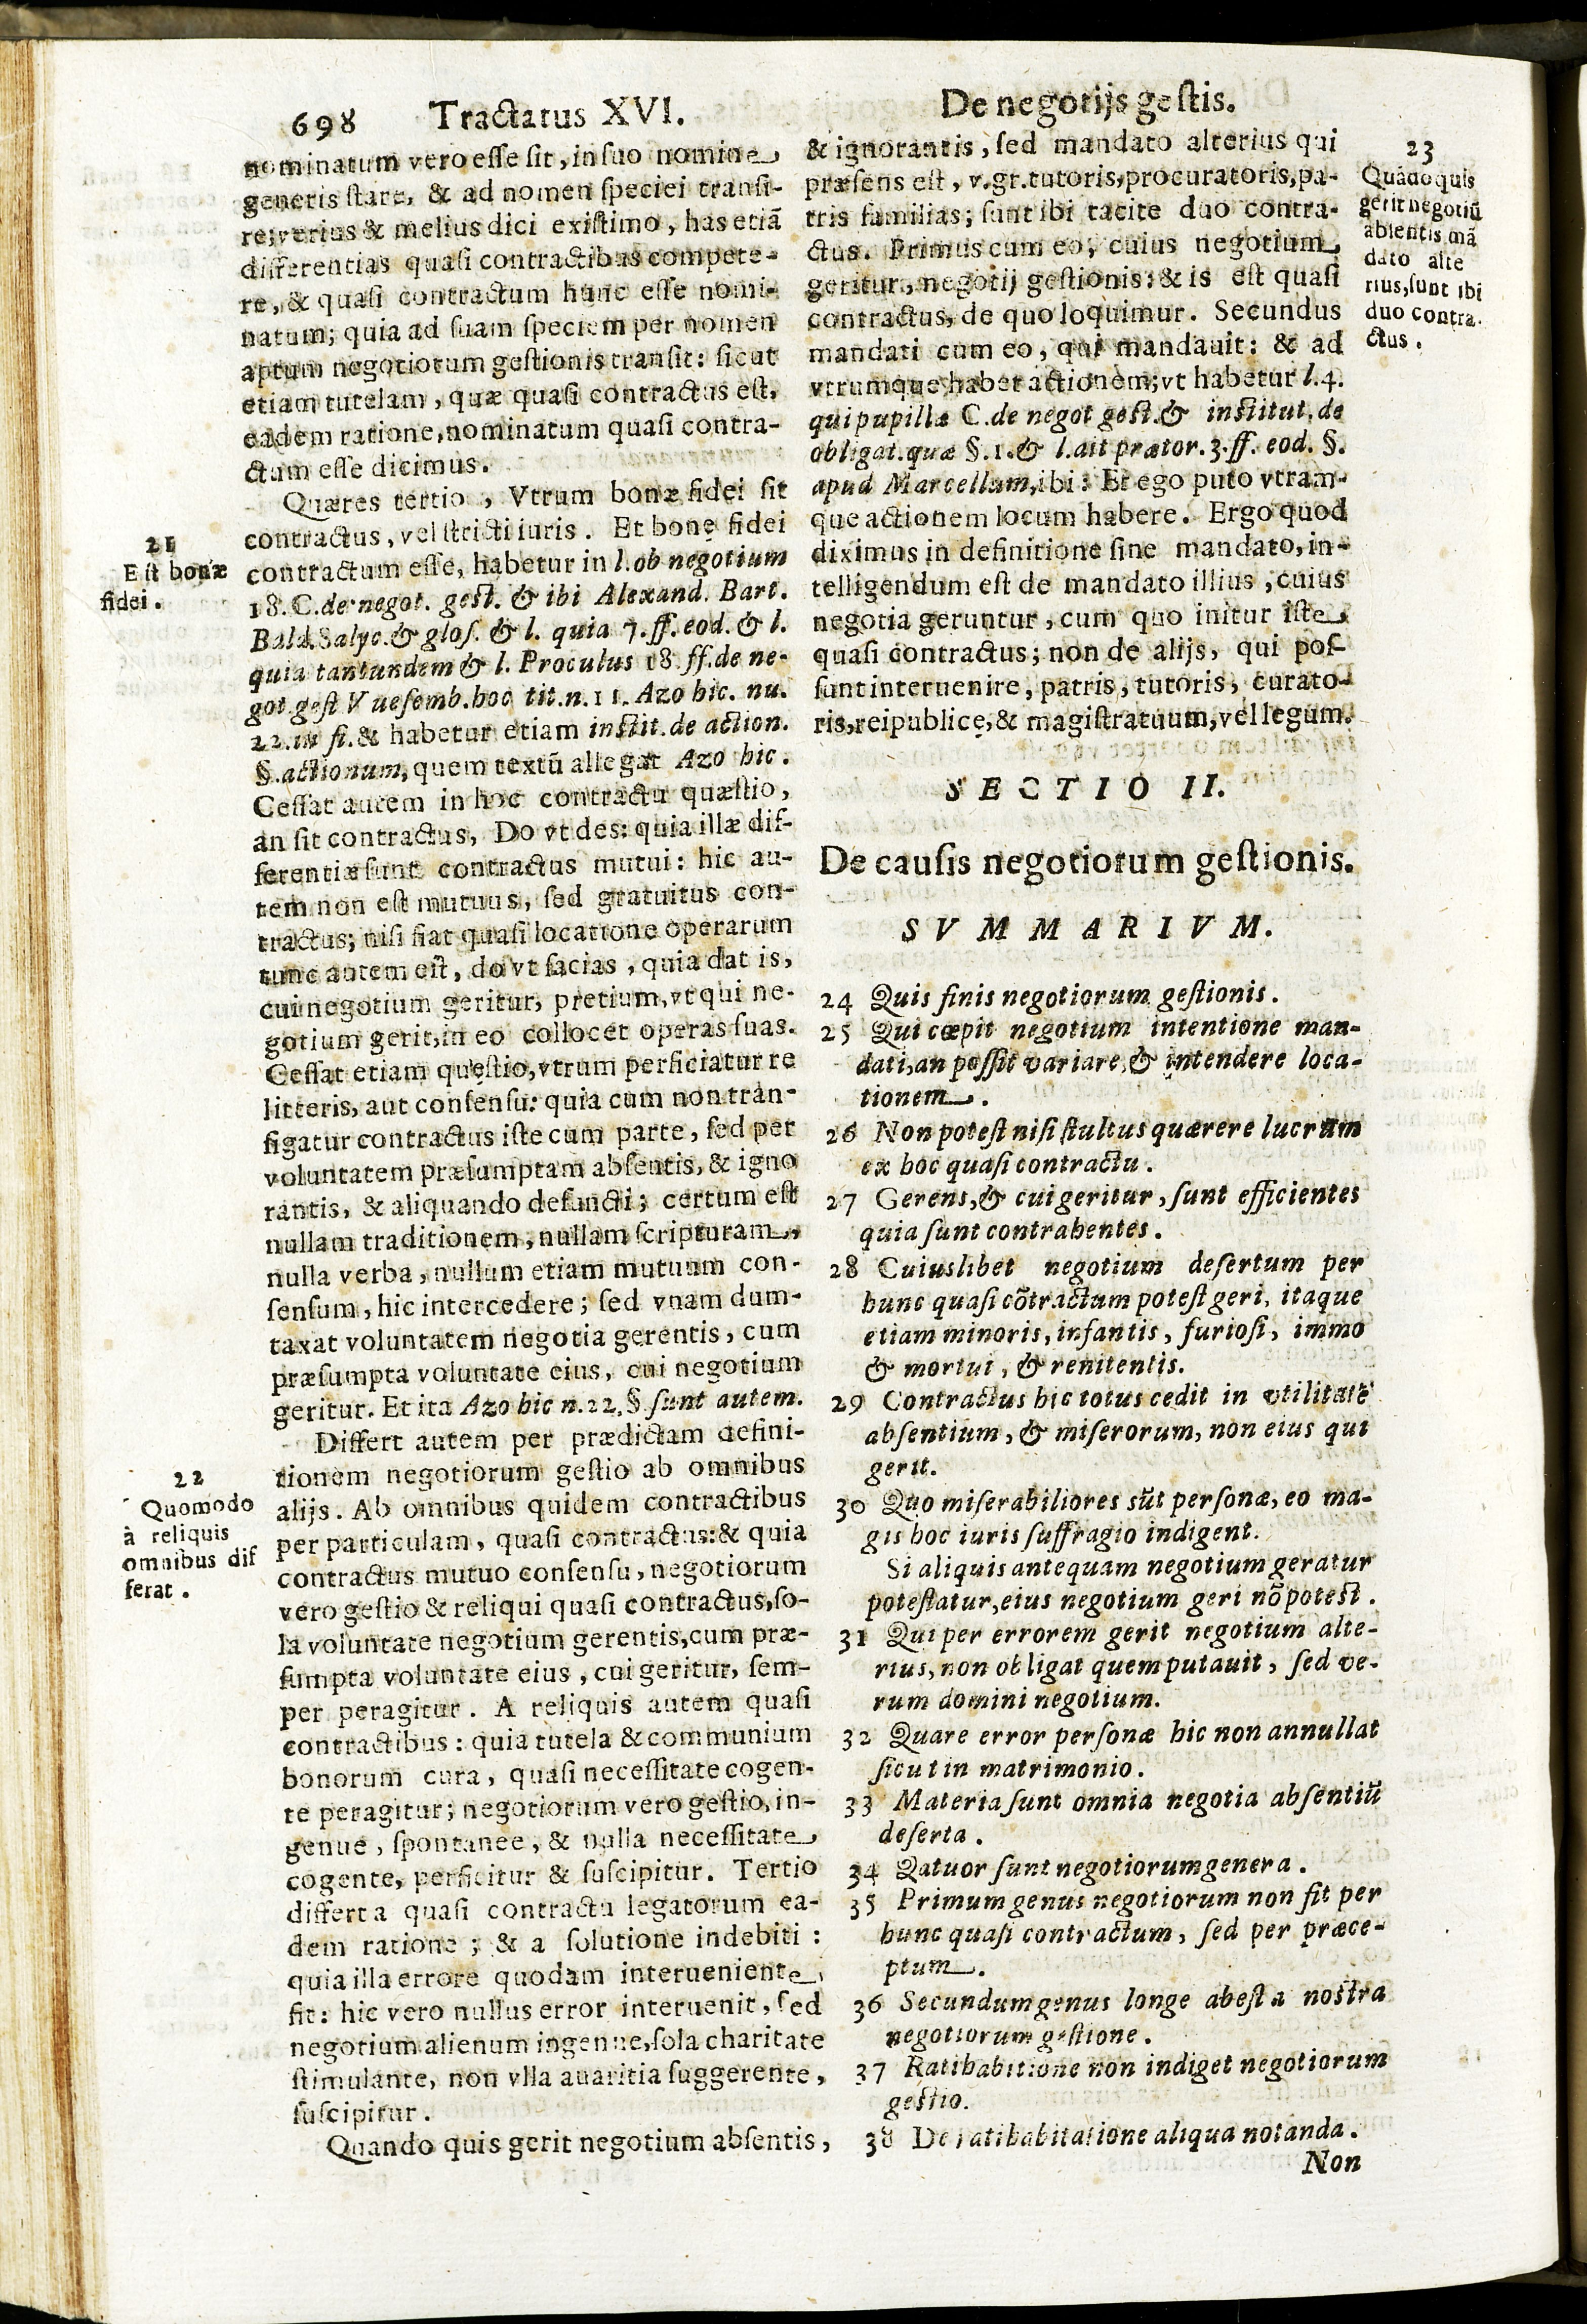 698 Tractatus XVI.
nominatum vero esse sit, in suo nomine
generis stare, & ad nomen speciei transi-
re; verius & melius dici existimo, has etiã
differentias quasi contractibus compete-
re, & quasi contractum hunc esse nomi-
natum; quia ad suam speciem per nomen
aptum negotiorum gestionis transit: sicut
etiam tutelam, quæ quasi contractus est,
eadem ratione, nominatum quasi contra-
ctum esse dicimus.
Quæres tertio, Vtrum bonæ fidei sit
contractus, vel stricti iuris. Et bonę fidei
contractum esse, habetur in l. ob negotium
18. C. de negot. gest. & ibi Alexand. Bart.
Bald. Salyc. & glos. & l. quia 7. ff. eod. & l.
quia tantundem & l. Proculus 18. ff. de ne-
got gest Vuesemb. hoc tit. n. 11. Azo hic. nu.
22. in fi. & habetur etiam instit. de action.
§. actionum, quem textũ allegat Azo hic.
Cessat autem in hoc contractu quæstio,
an sit contractus, Do vt des: quia illæ dif-
ferentiæ sunt contractus mutui: hic au-
tem non est mutuus, sed gratuitus con-
tractus; nisi fiat quasi locatione operarum
tunc autem est, do vt facias, quia dat is,
cui negotium geritur, pretium, vt qui ne-
gotium gerit, in eo collocet operas suas.
Cessat etiam quęstio, vtrum perficiatur re
litteris, aut consensu: quia cum non tran-
sigatur contractus iste cum parte, sed per
voluntatem præsumptam absentis, & igno
rantis, & aliquando defuncti; certum est
nullam traditionem, nullam scripturam,
nulla verba, nullum etiam mutuum con-
sensum, hic intercedere; sed vnam dum-
taxat voluntatem negotia gerentis, cum
præsumpta voluntate eius, cui negotium
geritur. Et ita Azo hic n. 22. §. sunt autem.
Differt autem per prædictam defini-
tionem negotiorum gestio ab omnibus
alijs. Ab omnibus quidem contractibus
per particulam, quasi contractus: & quia
contractus mutuo consensu, negotiorum
vero gestio & reliqui quasi contractus, so-
la voluntate negotium gerentis, cum præ-
sumpta voluntate eius, cui geritur, sem-
per peragitur. A reliquis autem quasi
contractibus: quia tutela & communium
bonorum cura, quasi necessitate cogen-
te peragitur; negotiorum vero gestio, in-
genue, spontanee, & nulla necessitate
cogente, perficitur & suscipitur. Tertio
differt a quasi contractu legatorum ea-
dem ratione; & a solutione indebiti:
quia illa errore quodam interueniente
fit: hic vero nullus error interuenit, sed
negotium alienum ingenue, sola charitate
stimulante, non vlla auaritia suggerente,
suscipitur.
Quando quis gerit negotium absentis,
21
Est bonæ
fidei.
22
Quomodo
à reliquis
omnibus dif
ferat.
De negotijs gestis.
& ignorantis, sed mandato alterius qui
præsens est, v. gr. tutoris, procuratoris, pa-
tris familias; sunt ibi tacite duo contra-
ctus. Primus cum eo, cuius negotium
geritur, negotij gestionis: & is est quasi
contractus, de quo loquimur. Secundus
mandati cum eo, qui mandauit: & ad
vtrumque habet actionem; vt habetur l. 4.
qui pupillæ C. de negot gest. & institut. de
obligat. quæ §. 1. & l. ait prætor. 3. ff. eod. §.
apud Marcellum, ibi: Et ego puto vtram-
que actionem locum habere. Ergo quod
diximus in definitione sine mandato, in-
telligendum est de mandato illius, cuius
negotia geruntur, cum quo initur iste
quasi contractus; non de alijs, qui pos-
sunt interuenire, patris, tutoris, curato-
ris, reipublicę, & magistratuum, vel legum.
SECTIO II.
De causis negotiorum gestionis.
SVMMARIVM.
24 Quis finis negotiorum gestionis.
25 Qui cœpit negotium intentione man-
dati, an possit variare, & intendere loca-
tionem.
26 Non potest nisi stultus quærere lucrum
ex hoc quasi contractu.
27 Gerens, & cui geritur, sunt efficientes
quia sunt contrahentes.
28 Cuiuslibet negotium desertum per
hunc quasi cõtractum potest geri, itaque
etiam minoris, infantis, furiosi, immo
& mortui, & renitentis.
29 Contractus hic totus cedit in vtilitate
absentium, & miserorum, non eius qui
gerit.
30 Quo miserabiliores sũt personæ, eo ma-
gis hoc iuris suffragio indigent.
Si aliquis antequam negotium geratur
potestatur, eius negotium geri nõ potest.
31 Qui per errorem gerit negotium alte-
rius, non obligat quem putauit, sed ve-
rum domini negotium.
32 Quare error personæ hic non annullat
sicut in matrimonio.
33 Materia sunt omnia negotia absentiũ
deserta.
34 Qatuor sunt negotiorum genera.
35 Primum genus negotiorum non fit per
hunc quasi contractum, sed per præce-
ptum.
36 Secundum genus longe abest a nostra
negotiorum gestione.
37 Ratihabitione non indiget negotiorum
gestio.
38 De ratihabitatione aliqua notanda.
Non
23
Quãdo quis
gerit negotiũ
absentis mã
dato alte
rius, sunt ibi
duo contra-
ctus.